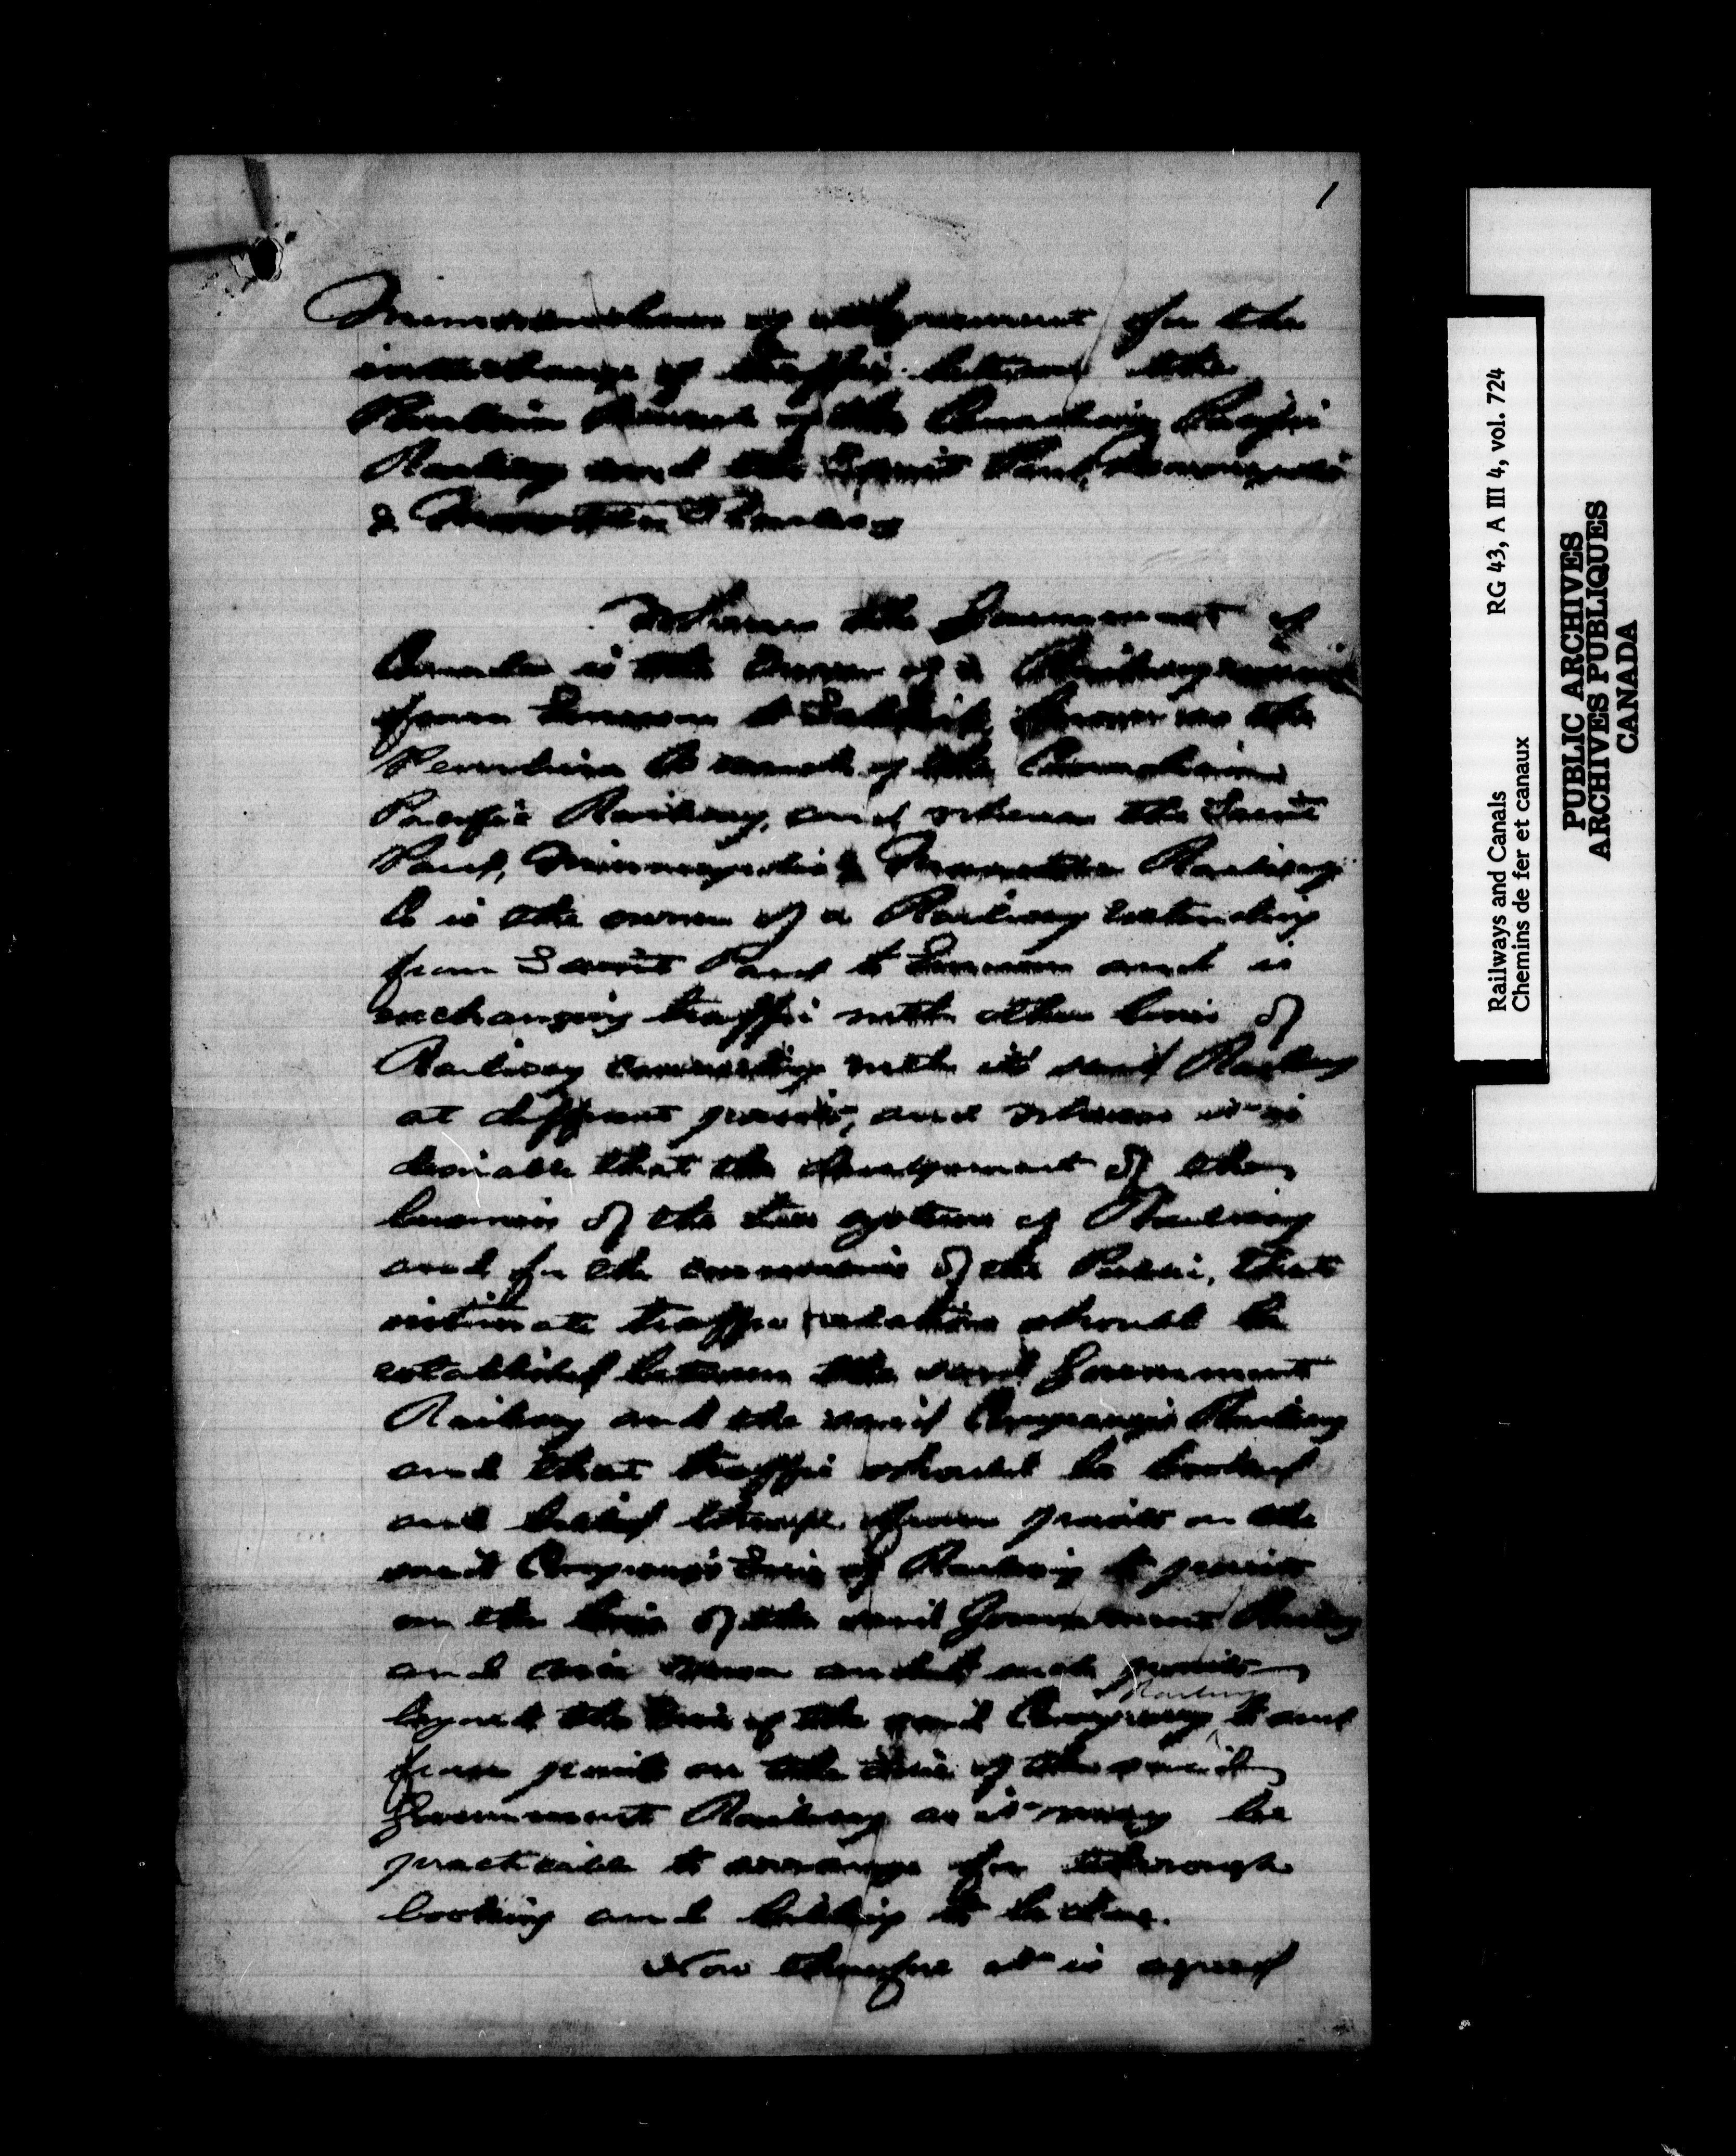 1
Memorandum of Agreement for the
interchange of traffic between the
Pembina Branch of the Canadian Pacific
Railway and the Saint Paul, Minneapolis
& Manitoba Railway
Whereas the Government of
Canada is the Owner of a Railway
from Emerson to Selkirk known as the
Pembina Branch of the Canadian
Pacific Railway, and whereas the Saint
Paul, Minneapolis & Manitoba Railway
Co is the owner of a Railway extending
from Saint Paul to Emerson and is
exchanging traffic with other lines of
Railway connecting with its said Railway
at different points, and whereas it is
desirable that the development of the
business of the two systems of Railway
and for the convenience of the Public, that
intimate traffic relations should be
established between the said Government
Railway and the said Company's Railway
and that traffic should be booked
and billed through from points on the
said Company's line of Railway to points
on the line of the said Government Railway
and such points
Railway
beyond the line of the said Company to and
from points on the line of the said
Government Railway as it may be
practicable to arrange for through
booking and billing to be done.
Now therefore it is agreed
Railways and Canals RG 43, A III 4, vol. 724
Chemins de fer et canaux
PUBLIC ARCHIVES
ARCHIVES PUBLIQUES
CANADA